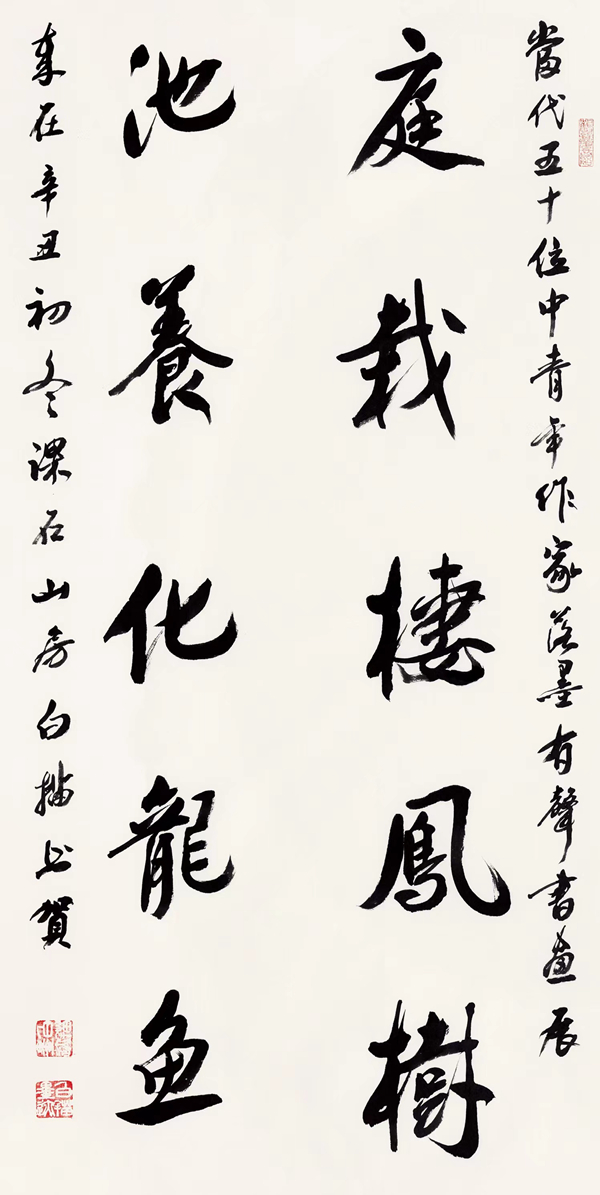 當代五十位中青年作家落墨有聲書畫展
庭栽棲鳳樹
池養化龍鱼
歲在辛丑初冬課石山房白描书賀